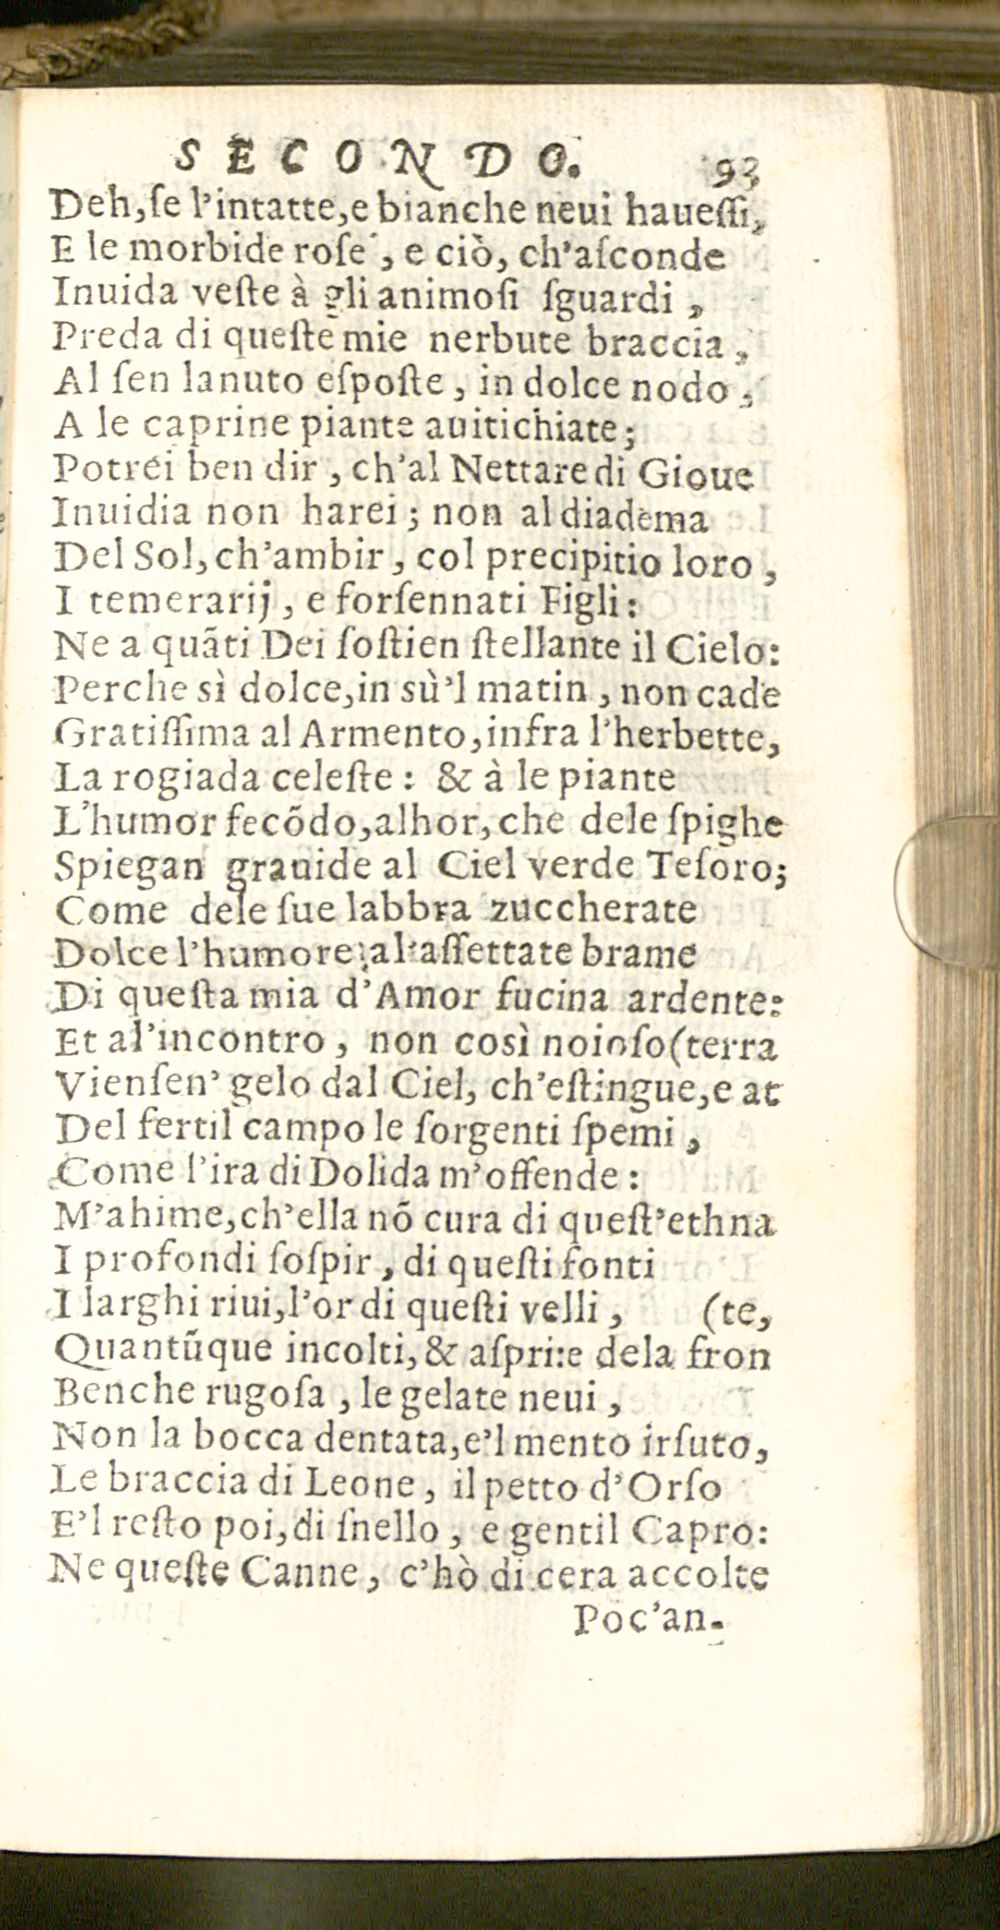 SECONDO. 93
Deh, ſe l'intatte, e bianche neui haueſſi,
E le morbide roſe, e ciò, ch'aſconde
Inuida veſte à gli animoſi ſguardi,
Preda di queſte mie nerbute braccia,
Al ſen lanuto eſpoſte, in dolce nodo,
A le caprine piante auitichiate;
Potrei ben dir, ch'al Nettare di Gioue
Inuidia non harei; non al diadema
Del Sol, ch'ambir, col precipitio loro,
I temerarij, e forſennati Figli:
Ne a quãti Dei ſoſtien ſtellante il Cielo:
Perche sì dolce, in sù'l matin, non cade
Gratiſſima al Armento, infra l'herbette,
La rogiada celeſte: & à le piante
L'humor fecõdo, alhor, che dele ſpighe
Spiegan grauide al Ciel verde Teſoro;
Come dele ſue labbra zuccherate
Dolce l'humore, al' aſſettate brame
Di queſta mia d'Amor fucina ardente:
Et al'incontro, non così noioſo (terra
Vienſen' gelo dal Ciel, ch'eſtingue, e at
Del fertil campo le ſorgenti ſpemi,
Come l'ira di Dolida m'offende:
M'ahime, ch'ella nõ cura di queſt'ethna
I profondi ſoſpir, di queſti fonti
I larghi riui, l'or di queſti velli, (te,
Quantũque incolti, & aſpri: e dela fron
Benche rugoſa, le gelate neui,
Non la bocca dentata, e'l mento irſuto,
Le braccia di Leone, il petto d'Orſo
E'l reſto poi, di ſnello, e gentil Capro:
Ne queſte Canne, c'hò di cera accolte
Poc'an-